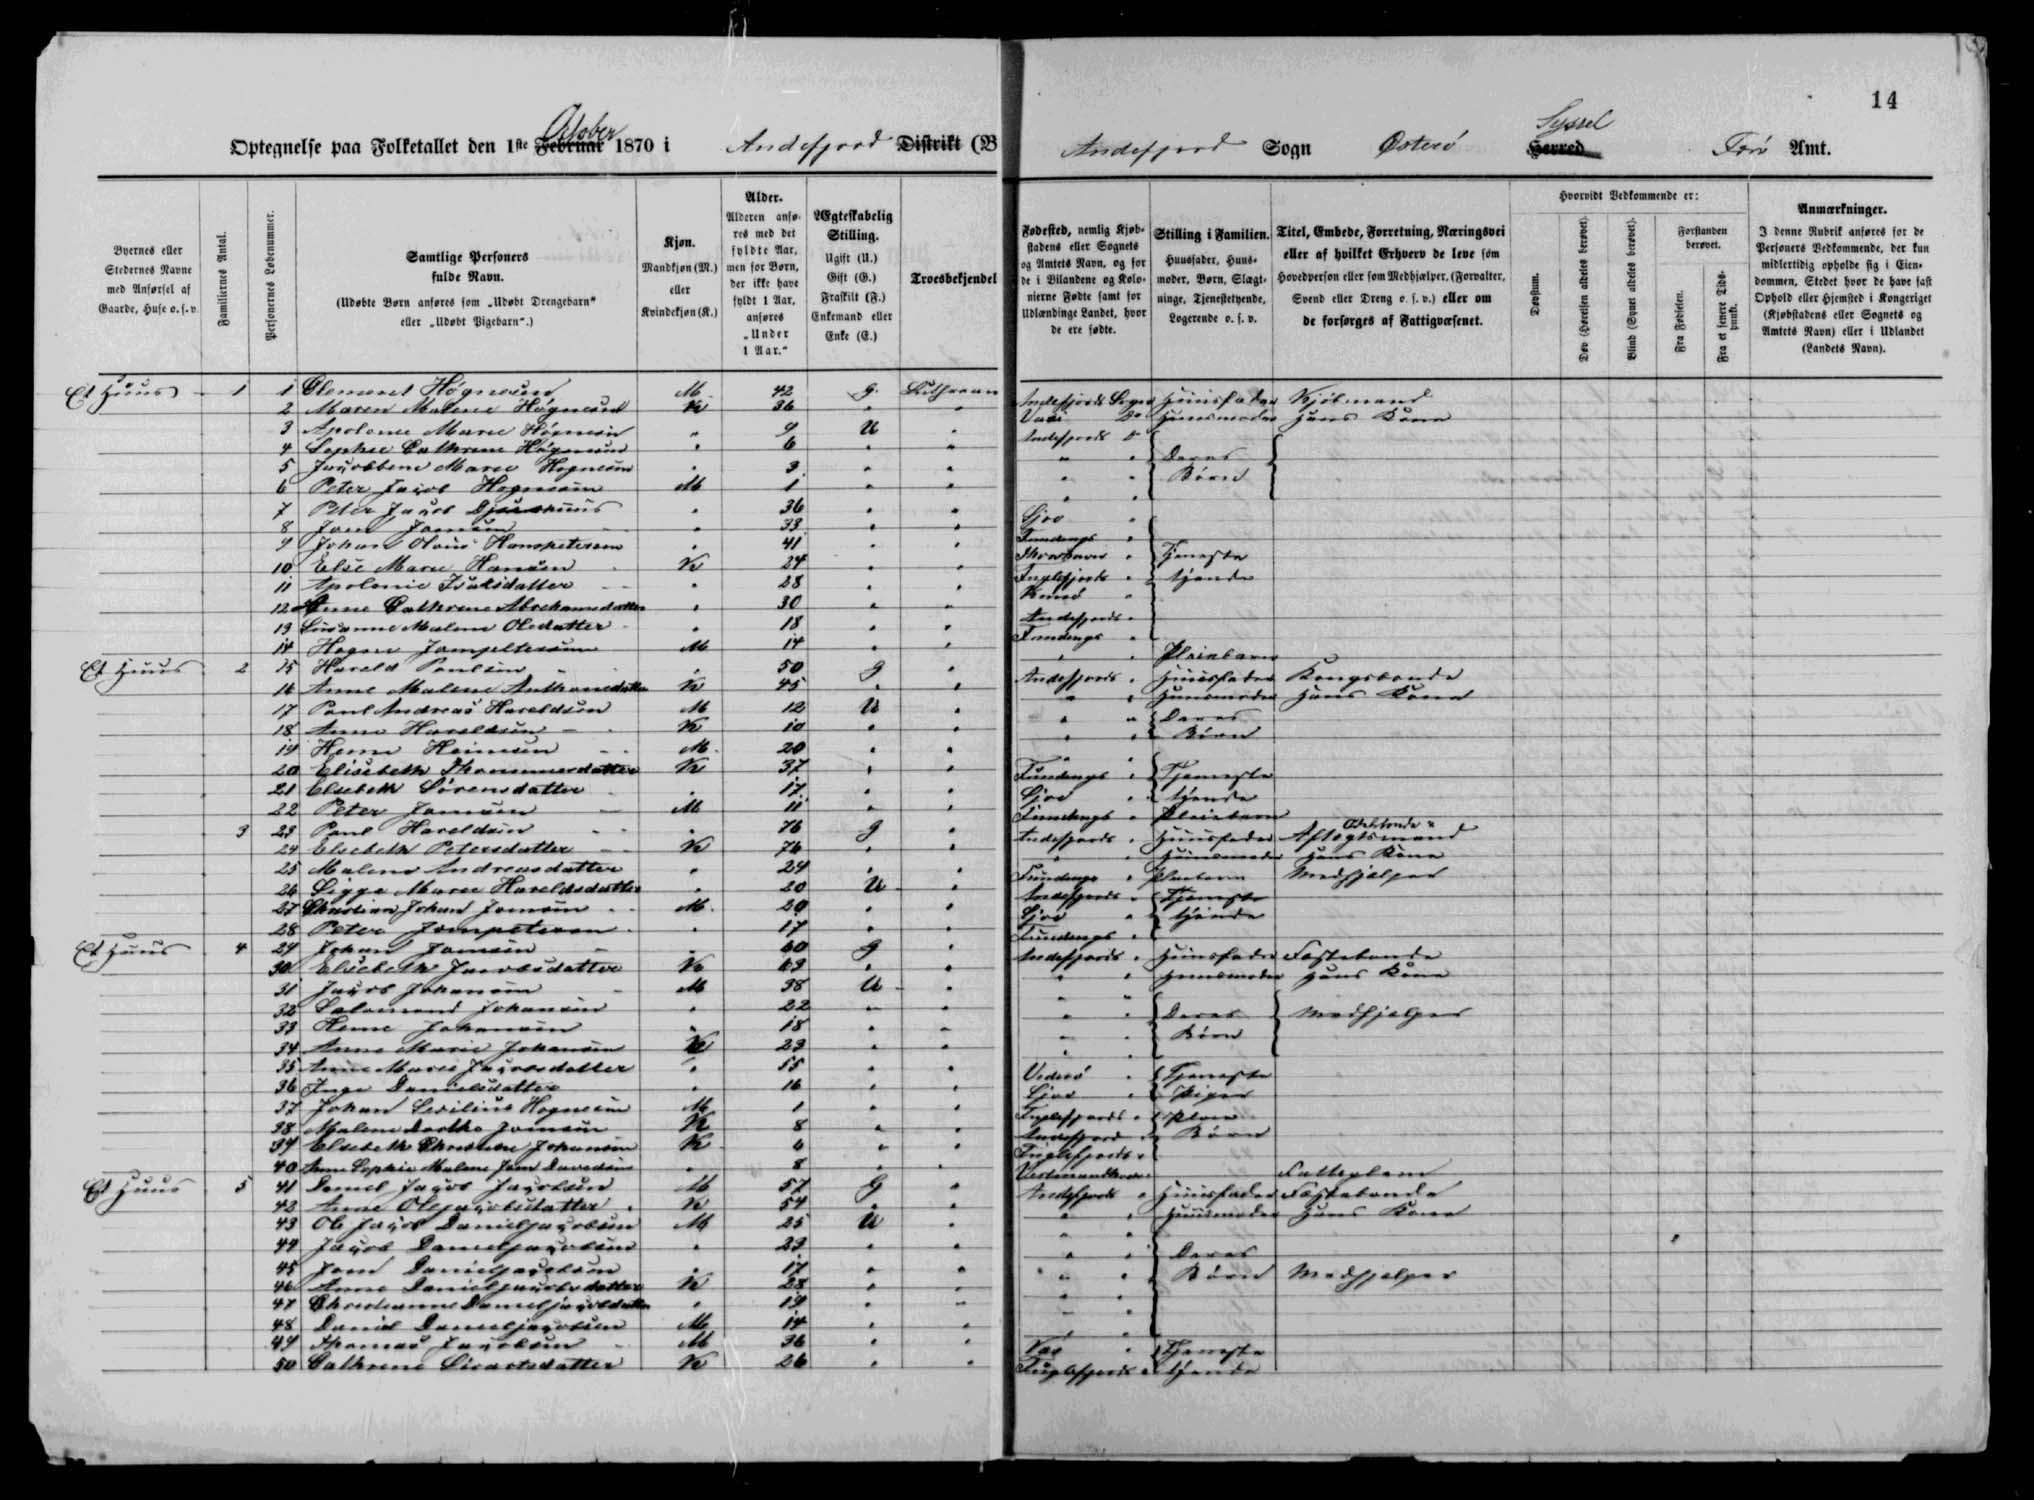 14
October
Syssel
Optegnelse paa Folketallet den 1ste Februar 1870 i Andefjord Distrikt (B
Andefjord Sogn Østerö Herred Færö Amt.
Byernes eller Stedernes Navne med Anførsel af Gaarde, Huse o. s. v.
Familiernes Antal.
Personernes Løbenummer.
Samtlige Personers fulde Navn.
(Udøbte Børn anføres som „Udøbt Drengebarn“ eller „Udøbt Pigebarn“.)
Kjøn.
Mandkjøn (M.) eller Kvindekjøn (K.)
Alder.
Alderen anføres med det fyldte Aar, men for Børn, der ikke have fyldt 1 Aar, anføres „Under 1 Aar.“
Ægteskabelig Stilling.
Ugift (U.) Gift (G.) Fraskilt (F.) Enkemand eller Enke (E.)
Troesbekjendel
Fødested, nemlig Kjøbstadens eller Sognets og Amtets Navn, og for de i Bilandene og Kolonierne Fødte samt for Udlændinge Landet, hvor de ere fødte.
Stilling i Familien.
Huusfader, Huusmoder, Børn, Slægtninge, Tjenestetyende, Logerende o. s. v.
Titel, Embede, Forretning, Næringsvei eller af hvilket Erhverv de leve som Hovedperson eller som Medhjælper, (Forvalter, Svend eller Dreng o. s. v.) eller om de forsørges af Fattigvæsenet.
Hvorvidt Vedkommende er:
Døvstum.
Døv (Hørelsen aldeles berøvet).
Blind (Synet aldeles berøvet).
Forstanden berøvet.
Fra Fødselen.
Fra et senere Tidspunkt.
Anmærkninger.
I denne Rubrik anføres for de Personers Vedkommende, der kun midlertidig opholde sig i Eiendommen, Stedet hvor de have fast Ophold eller Hjemsted i Kongeriget (Kjøbstadens eller Sognets og Amtets Navn) eller i Udlandet (Landets Navn).
Et Huus 1 1 Clement Högnesen M 42 G. Lutheran Andefjords Sogn Huusfader Kjöbmand
2 Maren Malene Högnesen K 36 " " Huusmoder Hans Kone
3 Apolone Marie Högnesen " 9 U " Andefjords
4 Sophie Cathrine Högnesen " 6 " " " " Deres
5 Jacobbene Marie Hognesen " 3 " " " " Börn
6 Peter Jacob Hognesen M 1 " " " "
7 Peter Jacob Djurhuus " 36 " "
8 Joen Joensen " 33 " " Fundings "
9 Johan Olavus Hanspetersen " 41 " " Thorshavn " Tjeneste
10 Elsie Marie Hansen K 24 " " Fuglefjords " tyende
11 Apolonie Isaksdatter " 28 " " Kunö "
12 Anne Cathrine Abrahamsdatter " 30 " " Andefjords "
13 Susanne Malene Olesdatter " 18 " " Fundings "
14 Hogne Joenpetersen M 14 " " " " Pleiebarn
Et Huus 2 15 Harald Poulsen " 50 G " Andefjords " Huusfader Kongsbonde
16 Anne Malene Anthonsdatter K 45 " " " " Huusmoder Hans Kone
17 Poul Andreas Haraldsen M 12 U " " " Deres
18 Anna Haraldsen K 10 " " " " Börn
19 Heine Heinesen M 20 " " " "
20 Elisebeth Thommesdatter K 37 " " Fundings " Tjeneste
21 Elsebeth Sörensdatter " 17 " " " tyende
22 Peter Joensen M 11 " " Fundings " Pleiebarn
3 23 Poul Haraldsen " 76 G " Andefjords " Huusfader Aftægtsmand
24 Elsebeth Petersdatter K 76 " " " " Huusmoder Hans Kone
25 Malene Andreasdatter " 24 " " Fundings " Medhjelper
26 Sigga Marie Haraldsdatter " 20 U " Andefjords " Tjeneste
27 Christian Johan Joensen M 20 " " " tyende
28 Peter Joenpetersen " 17 " " Fundings "
Et Huus 4 29 Johan Joensen " 60 G " Andefjords " Huusfader Fæstebonde
30 Elisebeth Jacobsdatter K 63 " " " " Huusmoder Hans Kone
31 Jacob Johansen M 38 U " " "
32 Salomond Johansen " 22 " " " " Deres Medhjelper
33 Heine Johansen " 18 " " " " Börn
34 Anne Marie Johansen K 23 " " " "
35 Anne Marie Jacobsdatter " 55 " " Viderö " Tjeneste
36 Inge Danielsdatter " 16 " " " Piger
37 Johan Hognesen M 1 " " Fuglefjords "
38 Malene Dorthe Joensen K 8 " " Andefjord " Börn
39 Elsebeth Christine Johansen K 6 " " Fuglefjords "
40 Anne Sophie Malene Joen Davidsen " 8 " " Vestmandhavn
Et Huus 5 41 Daniel Jacob Jacobsen M 57 G " Andefjords " Huusfader Fæstebonde
42 Anne Olejacobsdatter K 54 " " " " Huusmoder Hans Kone
43 Ole Jacob Danieljacobsen M 25 U " " "
44 Jacob Danieljacobsen " 23 " " " " Deres
45 Joen Danieljacobsen " 17 " " " " Börn Medhjelper
46 Anne Danieljacobsdatter K 28 " " " "
47 Christianne Danieljacobsdatter " 19 " " " "
48 Daniel Danieljacobsen M 14 " " " "
49 Thomas Jacobsen M 36 " " " Tjeneste
50 Cathrine Sivertsdatter K 26 " " Fuglefjords " tyende